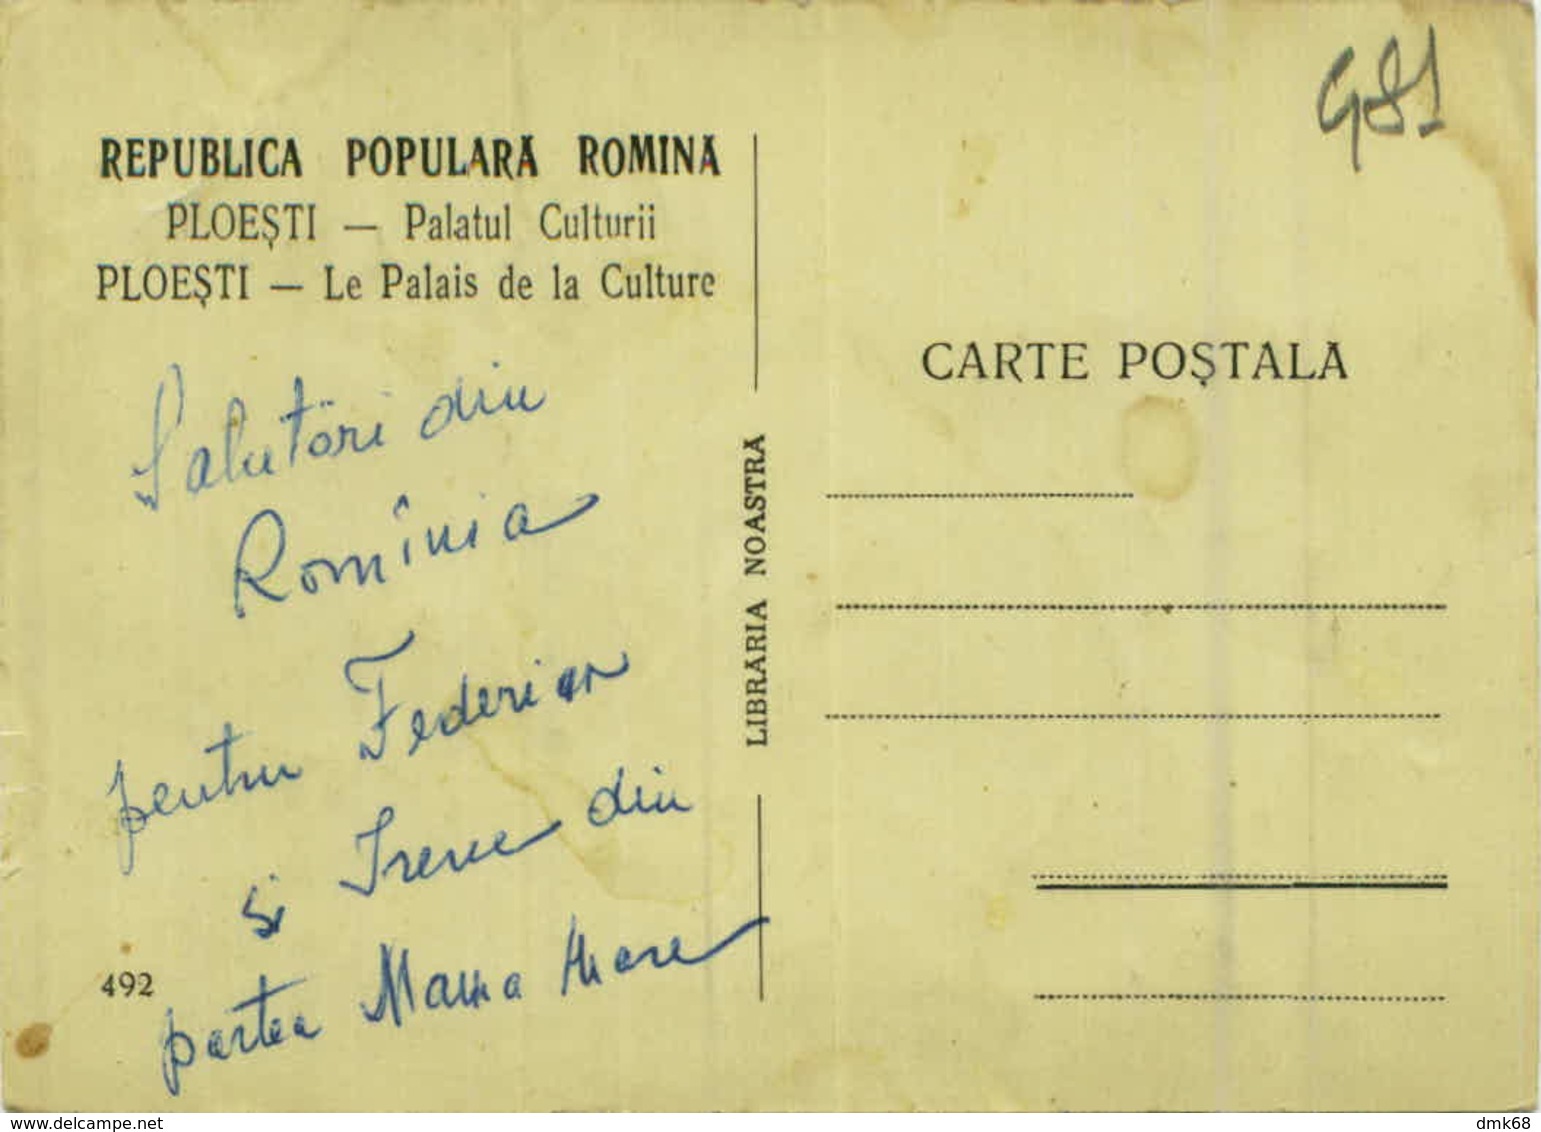 REPUBLICA POPULARĂ ROMINĂ
PLOEȘTI — Palatul Culturii
PLOEȘTI — Le Palais de la Culture
Salutări din
Romînia
pentru Federico
și Irene din
partea Mama Mare
492
LIBRĂRIA NOASTRĂ
G81
CARTE POȘTALĂ
delcampe.net
dmk68